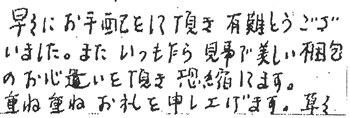 早々にお手配をして頂き 有難とうござ
いました。また いつもながら 見事で美しい梱包
のお心遣いを頂き 恐縮してます。
重ね重ね お礼を申し上げます。草々